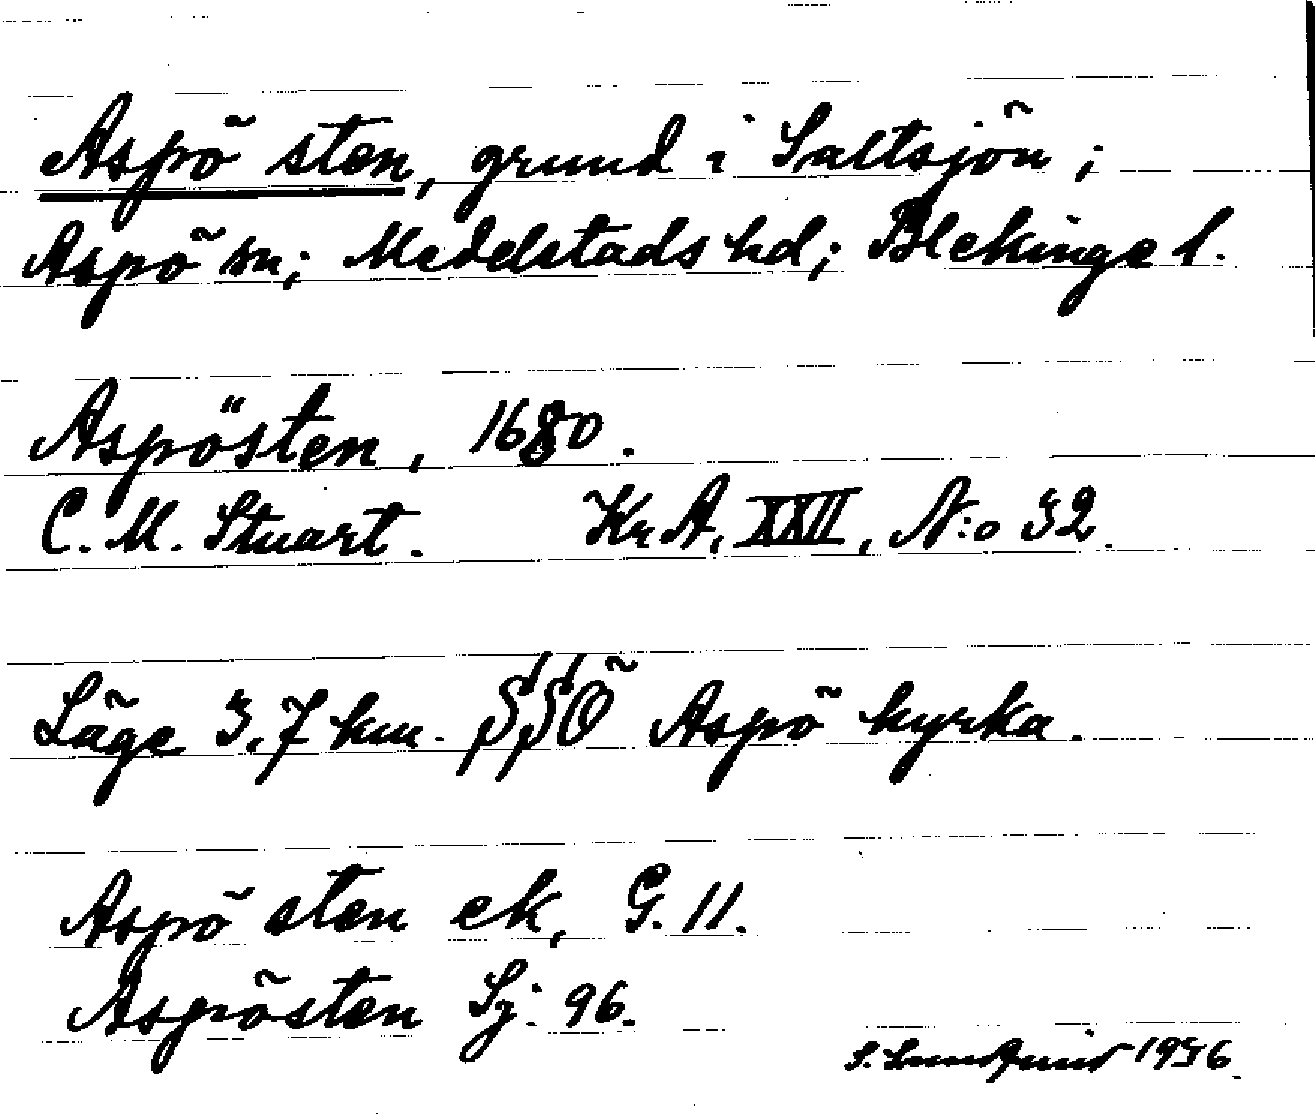 Aspö sten, grund i Saltsjön;
Aspö sn; Medelstads hd; Blekinge l.
Aspösten, 1680.
C. M. Stuart. Kr A, XXII, N:o 32.
Läge 3,7 km. SSÖ Aspö kyrka.
Aspö sten ek, G. 11.
Aspösten Sj. 96.
S. Lundquist 1936